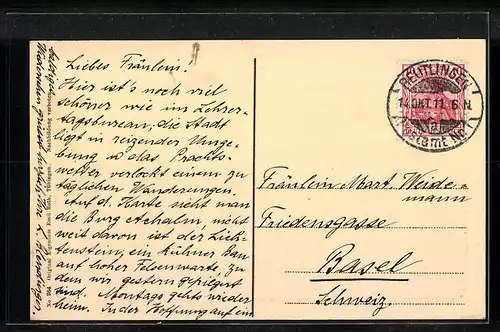 Liebes Fräulein!
Hier ist's noch viel
schöner wie im Lehrer-
tagsbureau; die Stadt
liegt in reizender Umge-
bung u das Prachts-
wetter verlockt einem zu
täglichen Wanderungen.
Auf d. Karte sieht man
die Burg Achalm, nicht
weit davon ist der Lich-
tenstein, ein kühner Bau
auf hoher Felsenwarte, zu
dem wir gestern gepilgert
sind. Montags gehts wieder
heim. In der Hoffnung auf ein
baldiges
Wiedersehen grüßt herzlich
No. 264. Original Eigentum Emil Roth, Tübingen. Nachbildung verboten.
REUTLINGEN
14.OKT.11. 6-N.
Postamt No
Fräulein Mart. Weide-
mann
Friedensgasse
Basel
Schweiz.